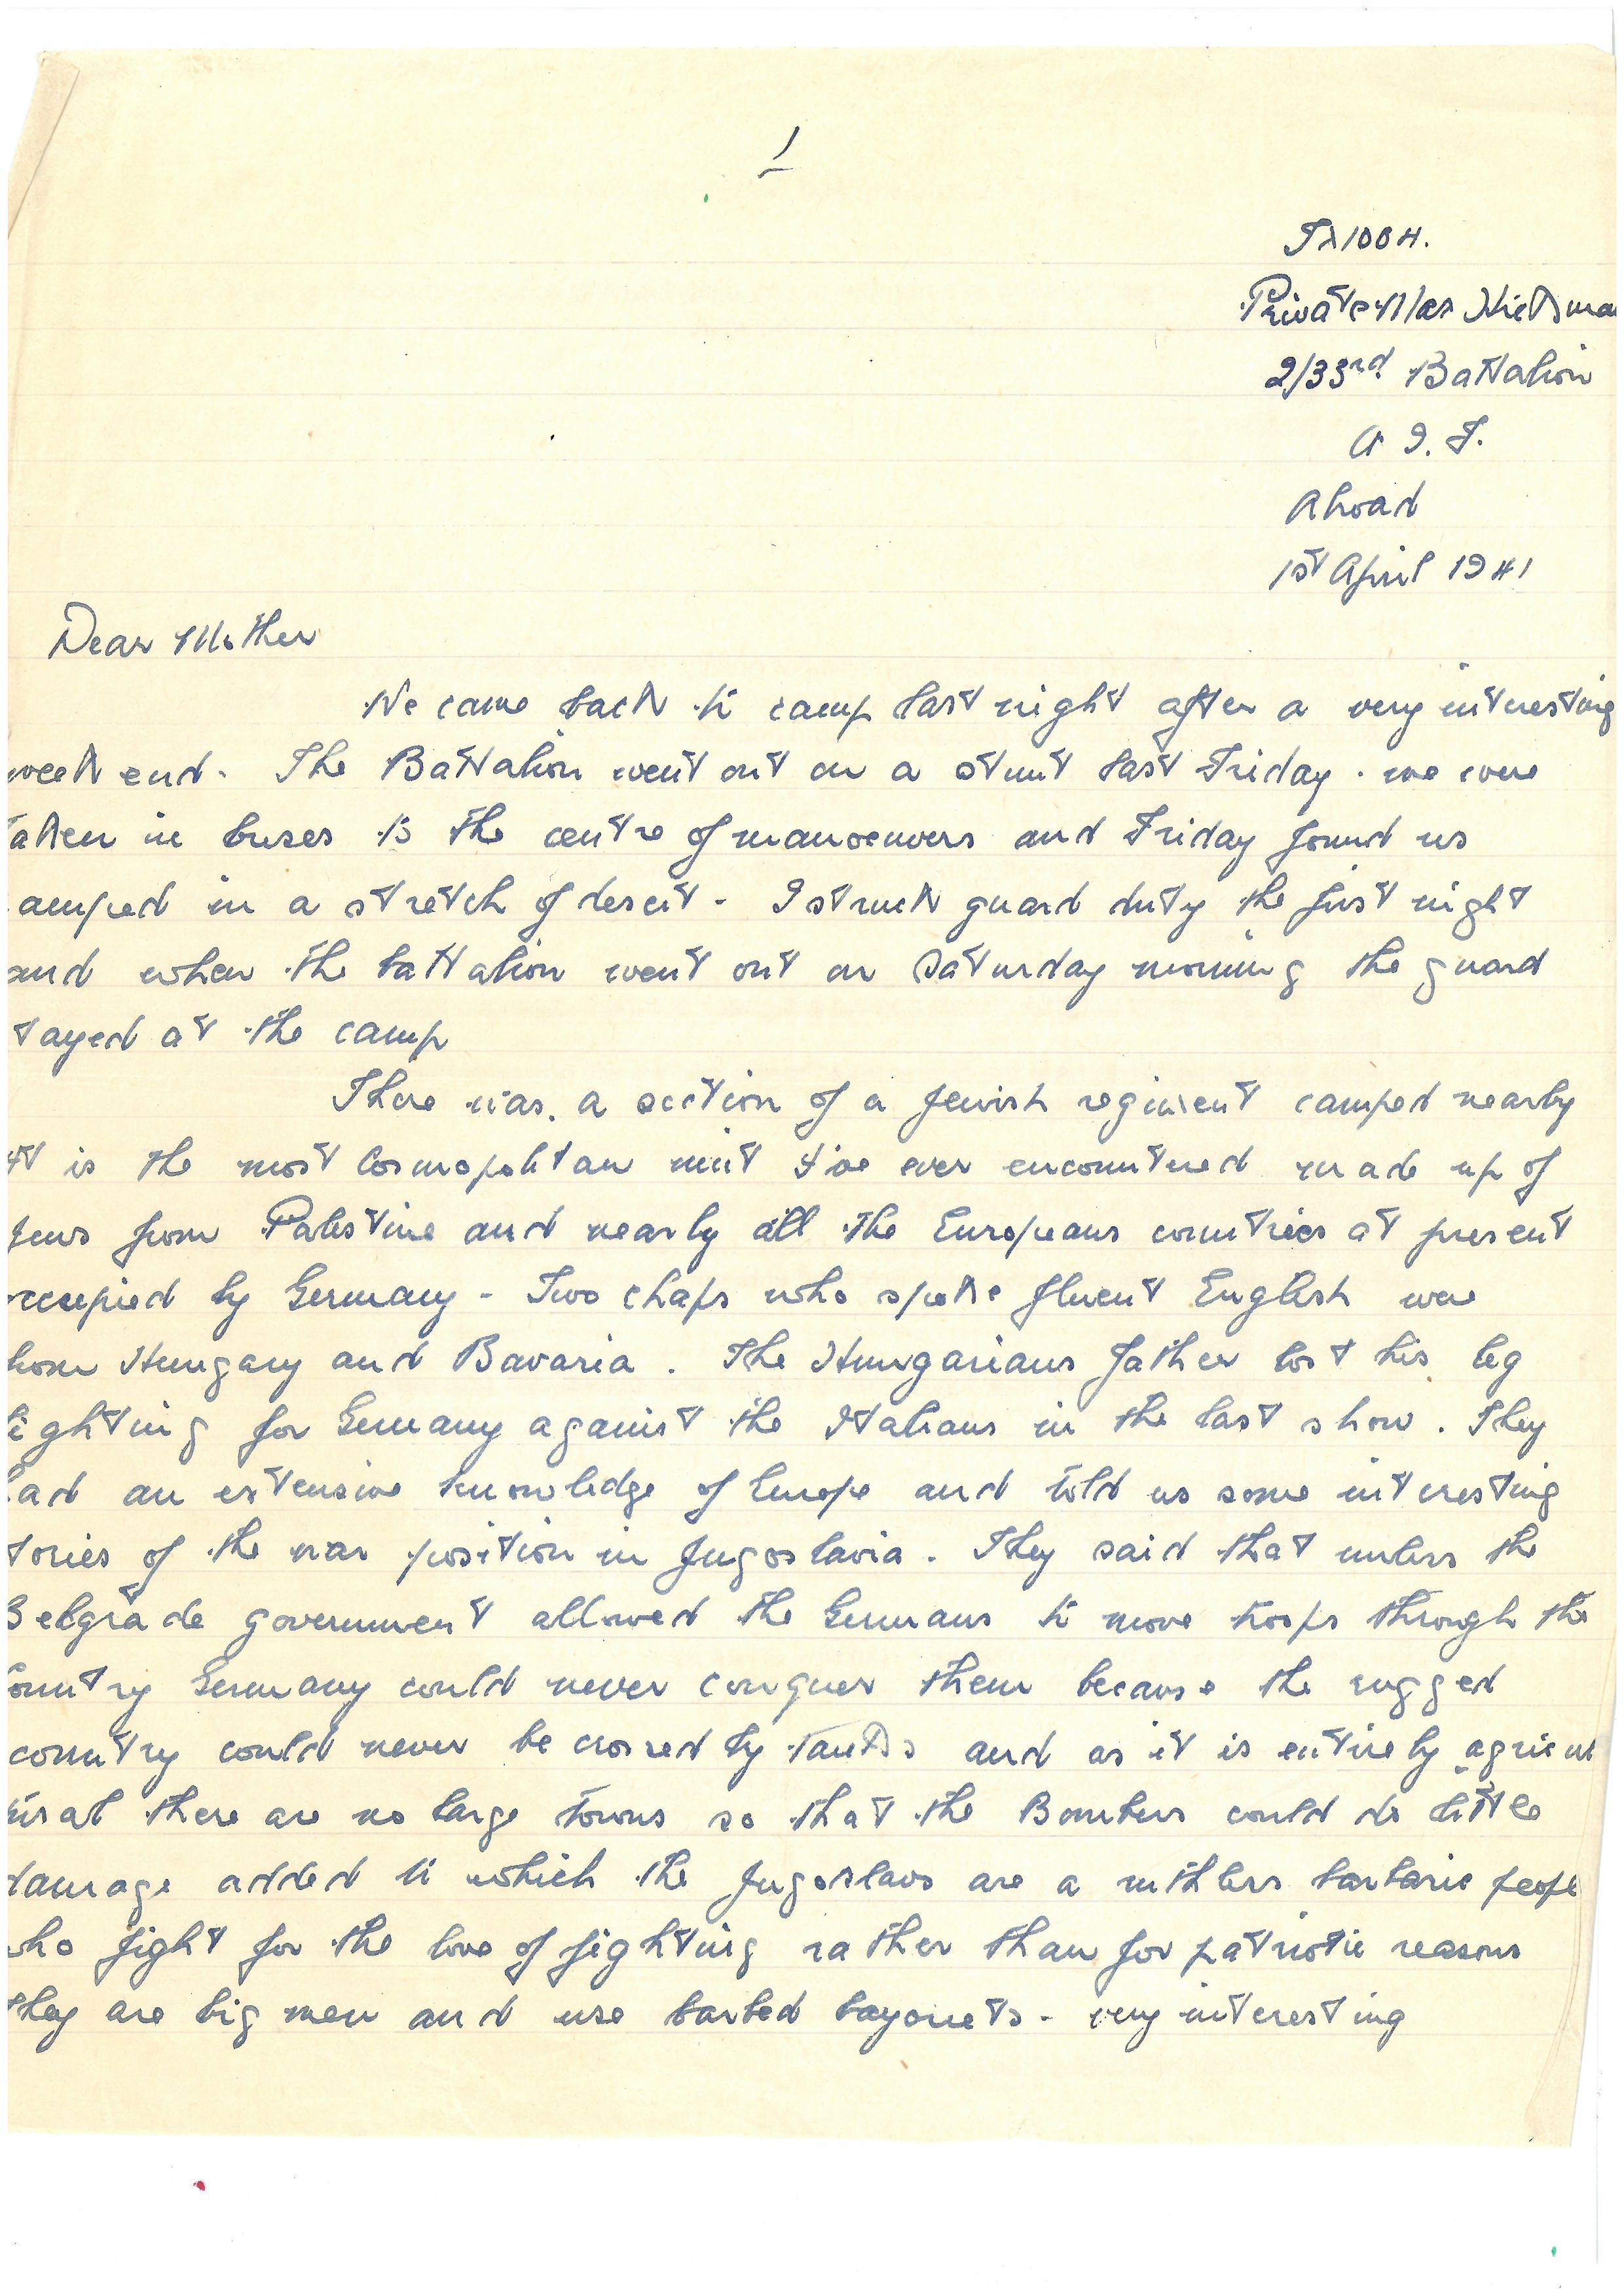 1
TX1004.
Private Max Hickman
2/33rd Battalion
A I. F.
Abroad
1st April 1941
Dear Mother
We came back to camp last night after a very interesting
week end. The Battalion went out on a stunt last Friday. we were
taken in buses to the centre of manoeuvers and Friday found us
camped in a stretch of desert - I struck guard duty the first night
and when the battalion went out on Saturday morning the guard
stayed at the camp
There was a section of a Jewish regiment camped nearby
It is the most Cosmopolitan unit I've ever encountered made up of
Jews from Palestine and nearly all the Europeans countries at present
occupied by Germany - Two chaps who spoke fluent English were
from Hungary and Bavaria. The Hungarians father lost his leg
fighting for Germany against the Italians in the last show. They
had an extensive knowledge of Europe and told us some interesting
stories of the war position in Jugoslavia. They said that unless the
Belgrade government allowed the Germans to move troops through the
Country Germany could never conquer them because the rugged
country could never be crossed by tanks and as it is entirely agricul
tural there are no large towns so that the Bombers could do little
damage added to which the Jugoslavs are a ruthless barbaric people
who fight for the love of fighting rather than for patriotic reasons
They are big men and use barbed bayonets - very interesting